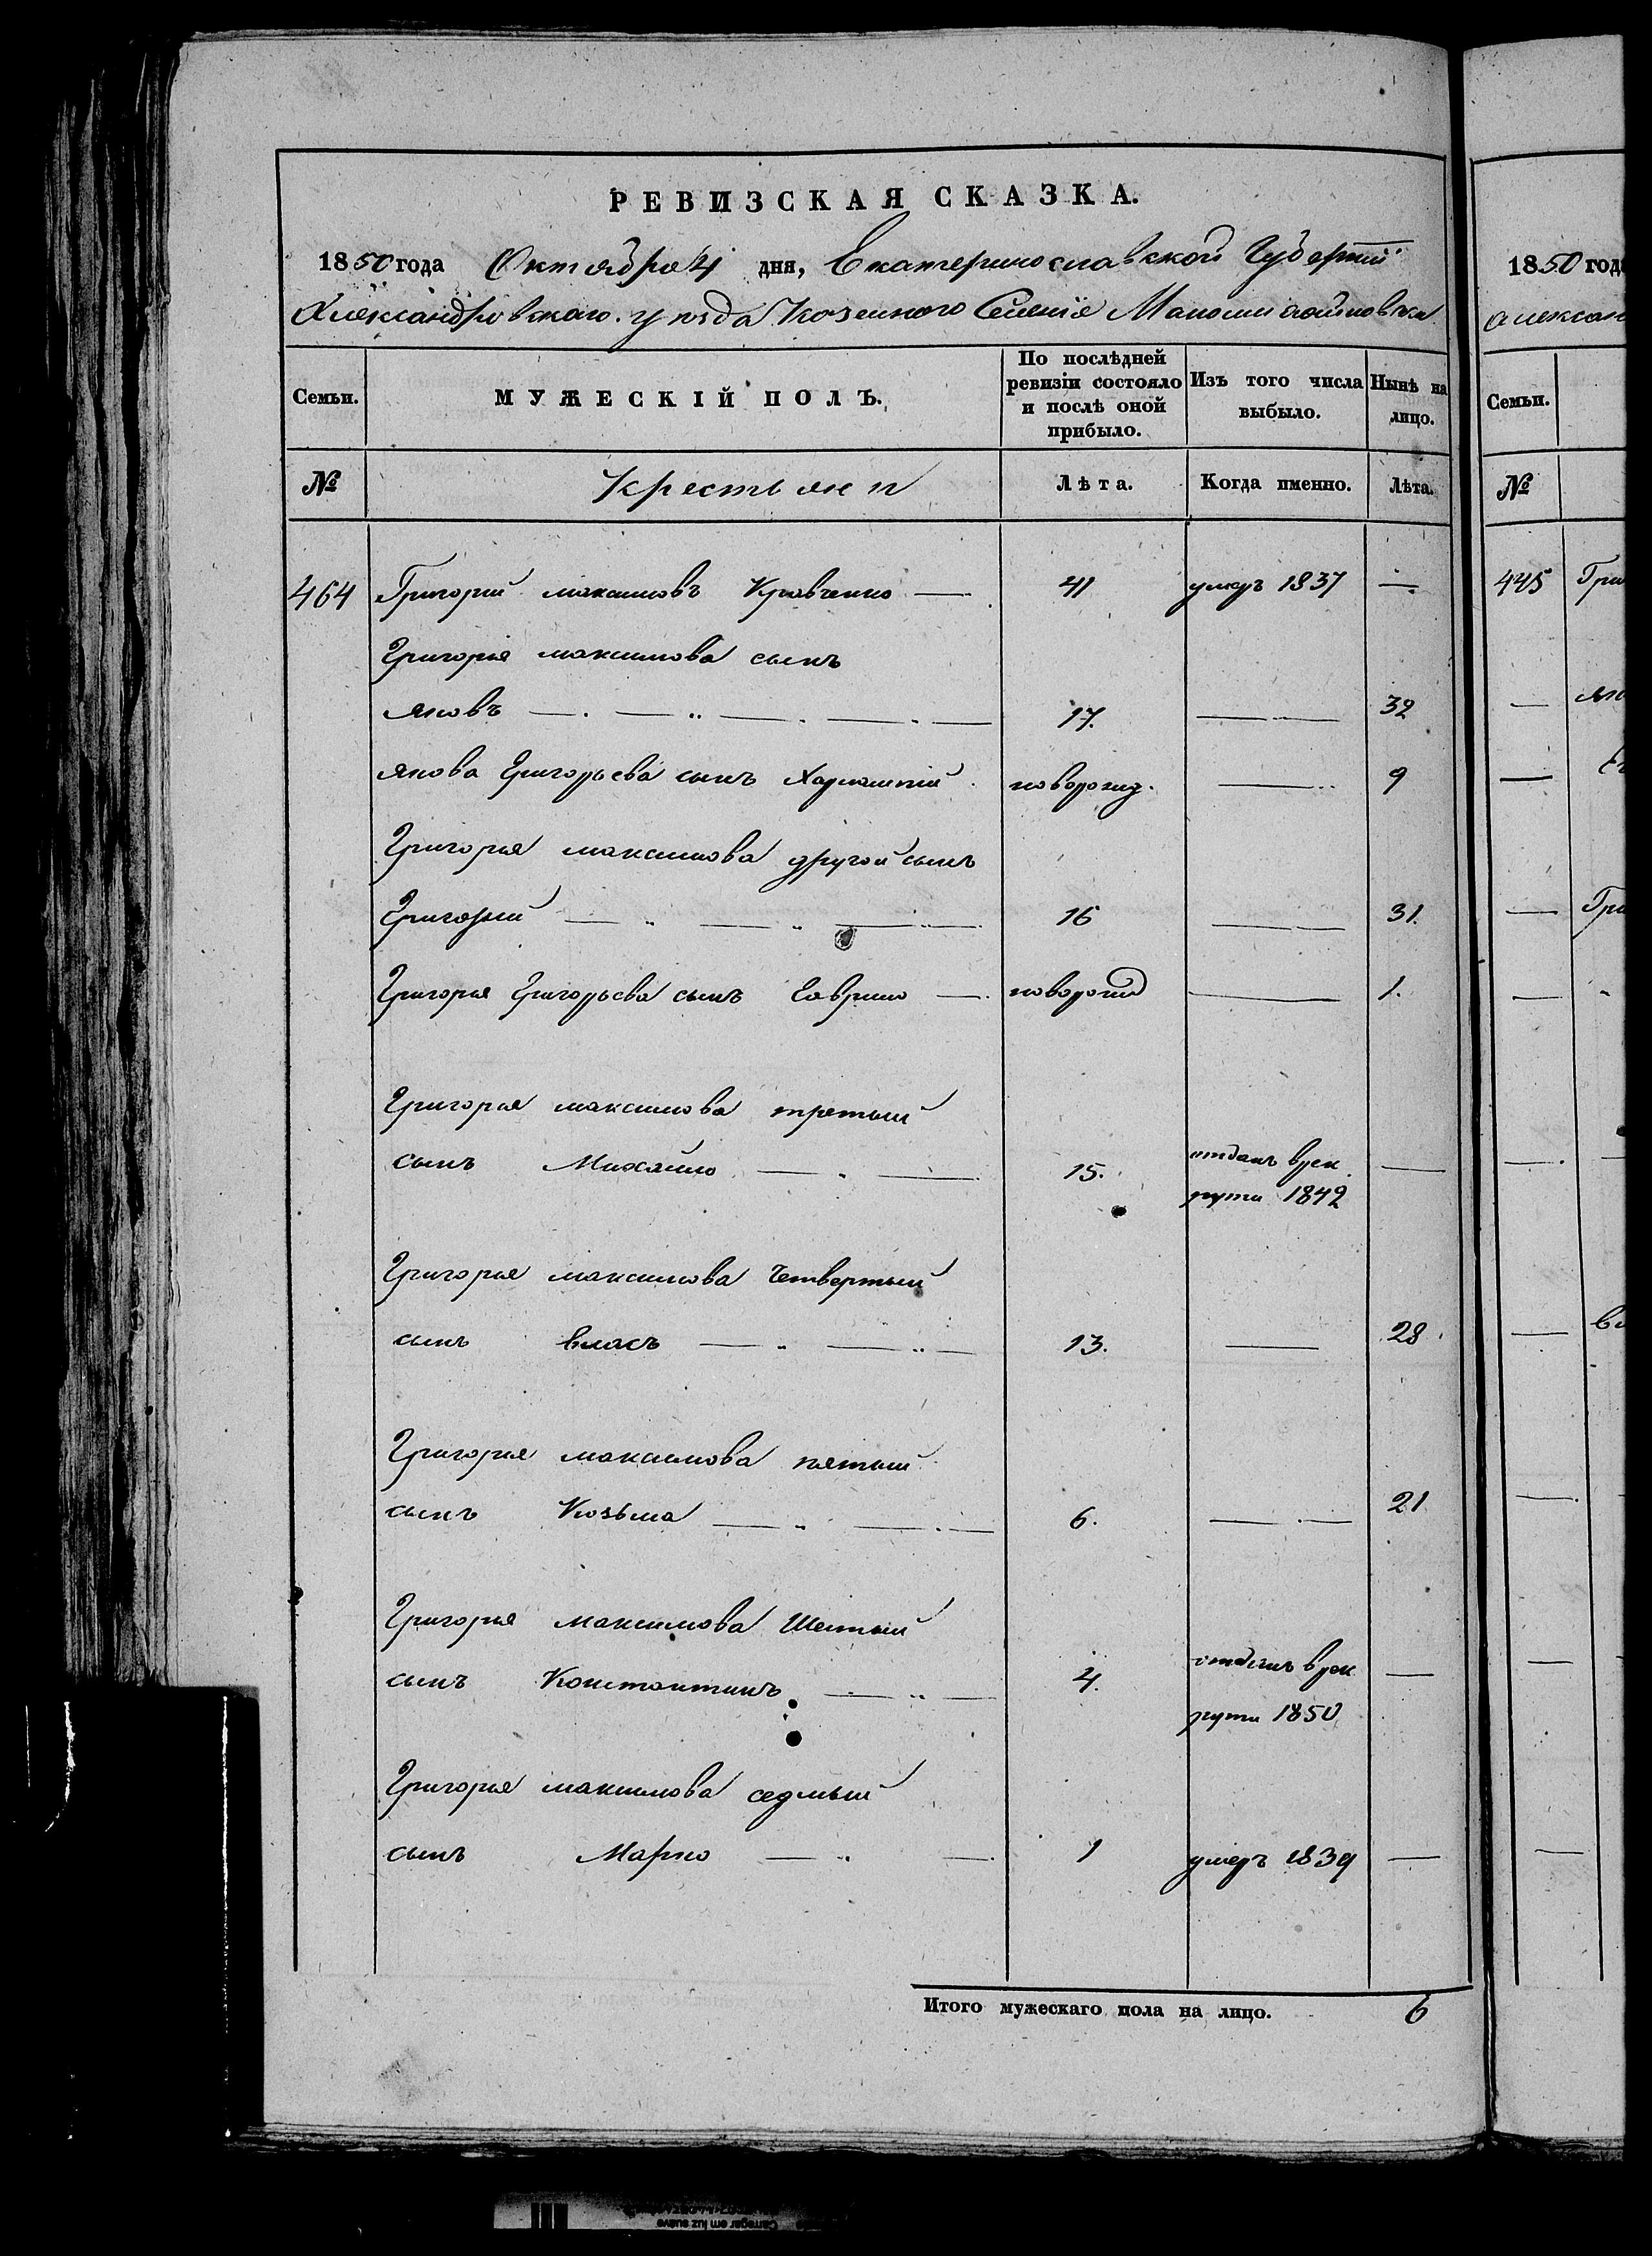 РЕВИЗСКАЯ СКАЗКА.
1850 года Октября 4 дня, Екатеринославской Губернiи
Александровскаго уѣзда Казеннаго Селенiе
Семьи. МУЖЕСКІЙ ПОЛЪ. По послѣдней ревизіи состояло и послѣ оной прибыло. Изъ того числа выбыло. Нынѣ на лицо.
№ Крестьянѣ Лѣта. Когда именно. Лѣта.
464 Григорий максимовъ Кравченко — 41 умеръ 1837 —
Григорiя максимова сынъ
яковъ — 17. — 32
якова Григорьева сынъ Харлампiй новорожд. — 9
Григорья максимова другой сынъ
Григорий — 16 — 31.
Григорья Григорьева сынъ Гаврило — новорожд — 1.
Григорья максимова третьий
сынъ Михайло — 15. отданъ врек
руты 1842 —
Григорья максимова Четвертый
сынъ власъ — 13. — 28.
Григорья максимова пятый
сынъ Козьма — 6. — 21
Григорья максимова Шестый
сынъ Константинъ — 4. отданъ врек
руты 1850 —
Григорья максимова седмый
сынъ Марко — 1 умеръ 1839 —
Итого мужескаго пола на лицо. 6
1850 год
алексан
Семьи.
№
445 Гри